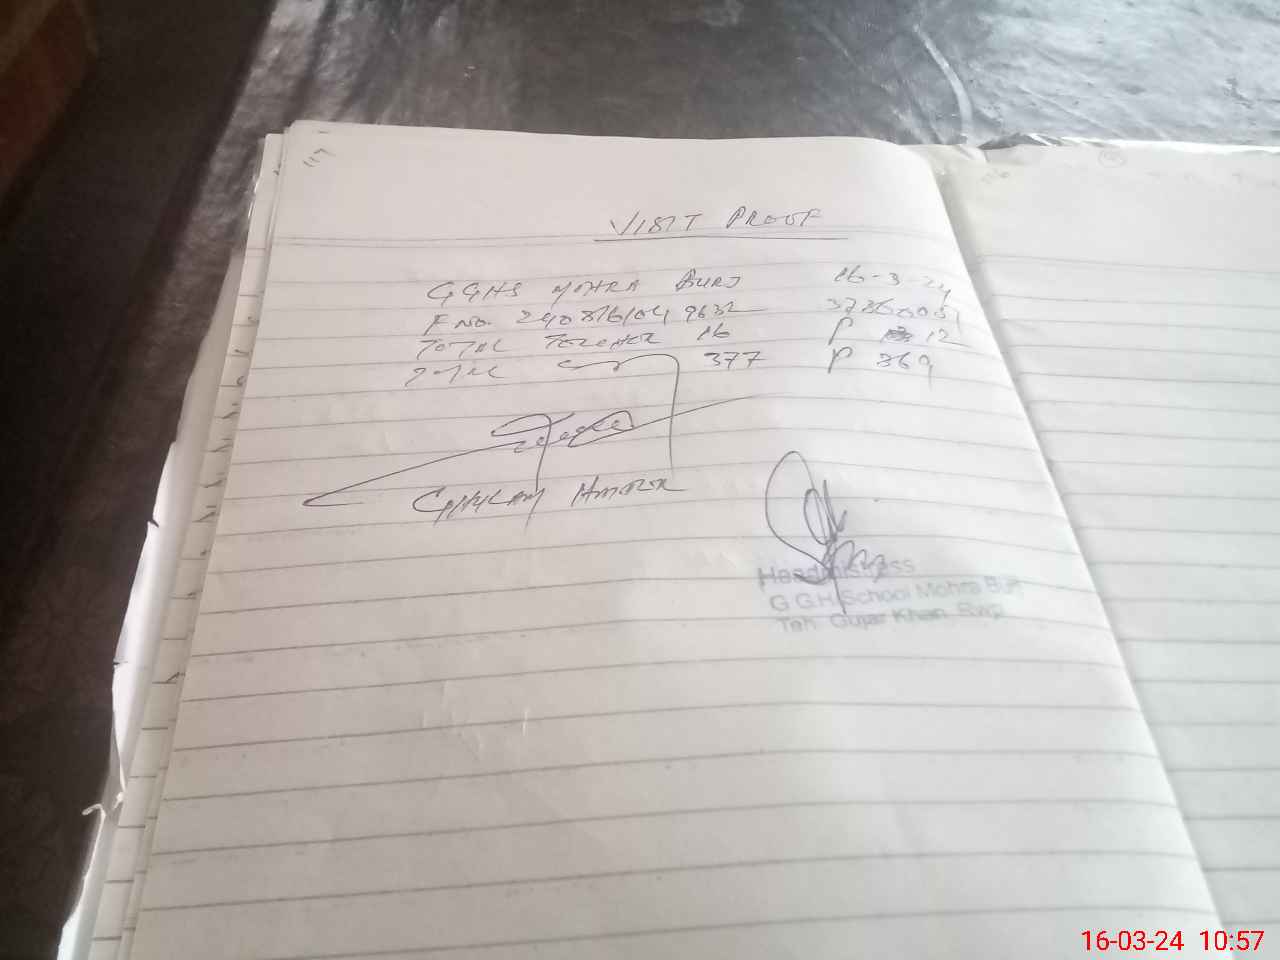 117
VISIT PROOF
GGHS MOHRA BURJ 16-3-24
F No. 37360051
TOTAL TEACHER 16 P 12
TOTAL 377 P 369
GHULAM
Headmistress
G G.H School Mohra Burj
Teh. Gujar Khan, Rwp
16-03-24 10:57